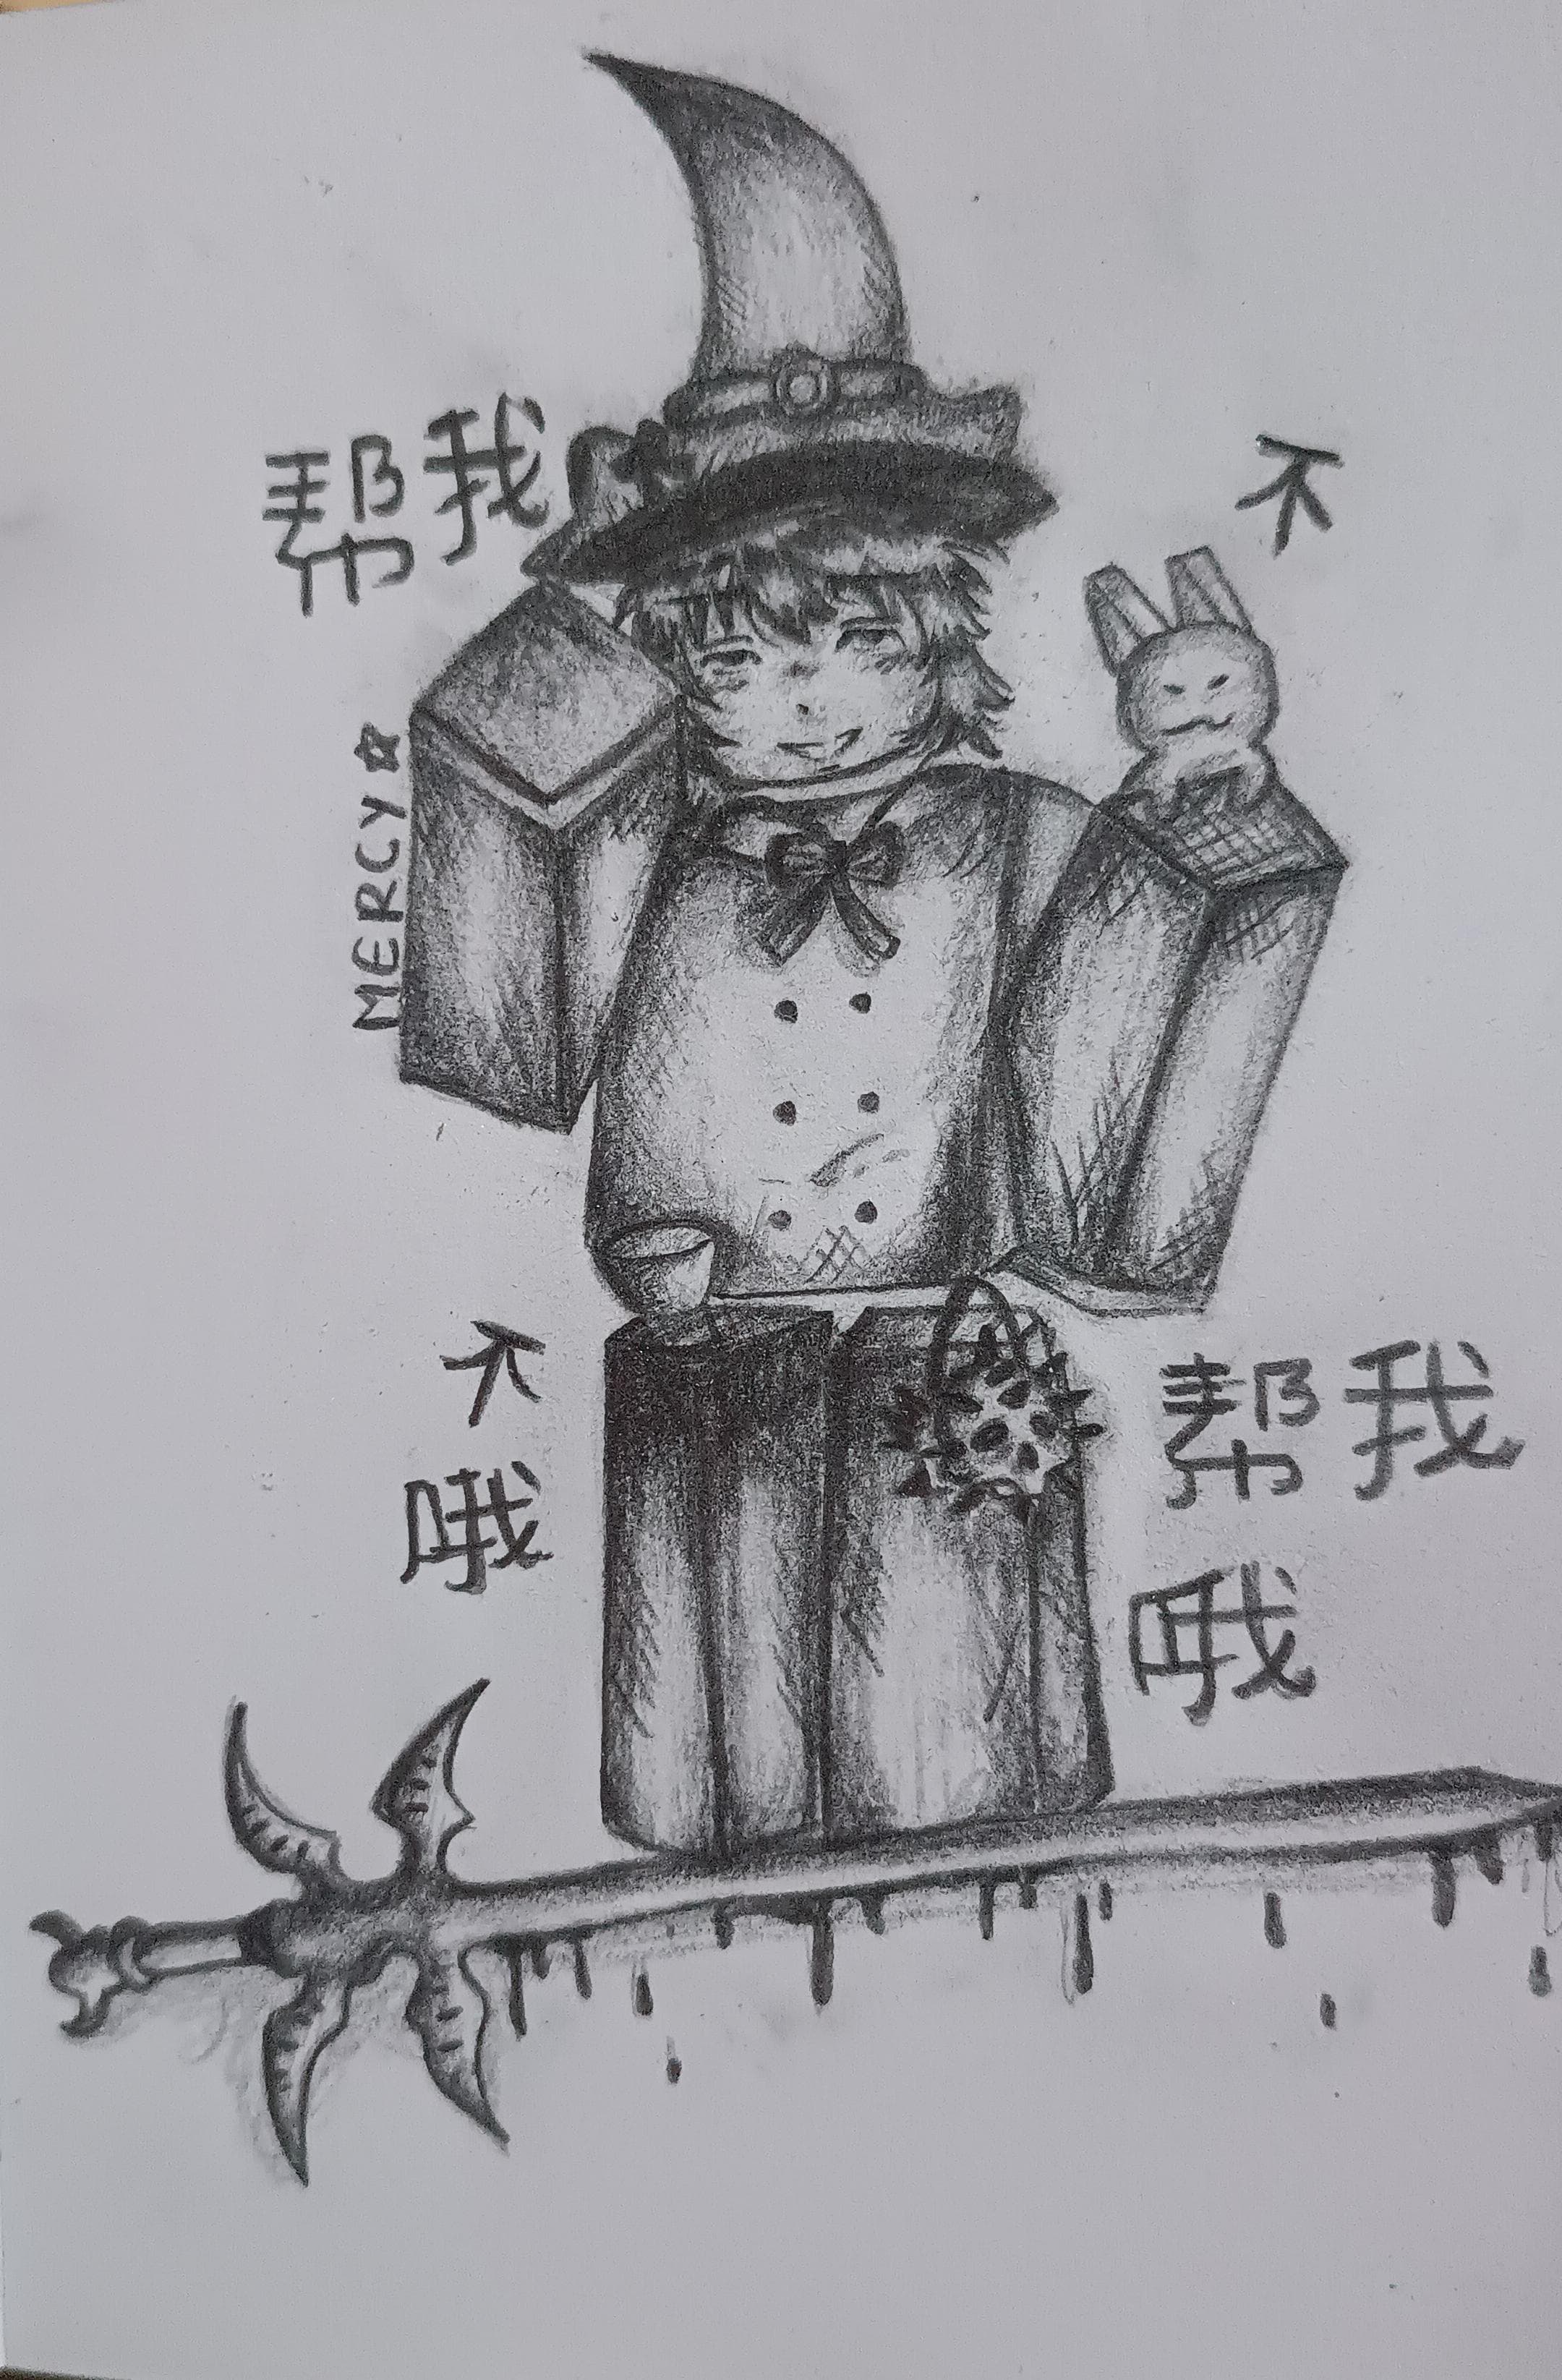 帮我
不
MERCY☆
不
哦
帮我
哦